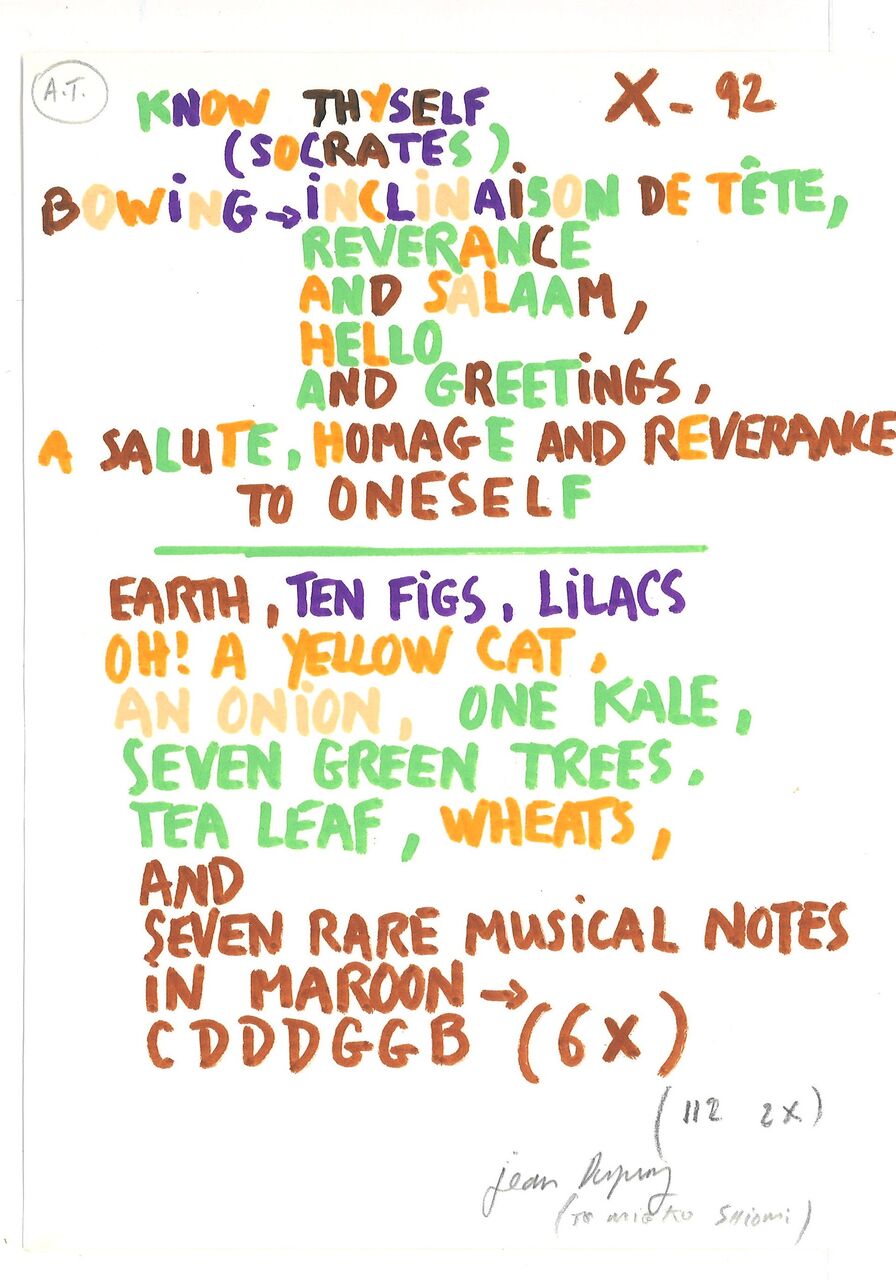 A.T.
KNOW THYSELF X - 92
(SOCRATES)
BOWiNG → iNCLiNAiSON DE TÊTE,
REVERANCE
AND SALAAM,
HELLO
AND GREETiNGS,
A SALUTE, HOMAGE AND REVERANCE
TO ONESELF
EARTH, TEN FiGS, LiLACS
OH! A YELLOW CAT,
AN ONiON, ONE KALE,
SEVEN GREEN TREES.
TEA LEAF, WHEATS,
AND
SEVEN RARE MUSiCAL NOTES
iN MAROON →
CDDDGGB (6X)
(112 2X)
jean Dupuy
(TO MIEKO SHIOMI)